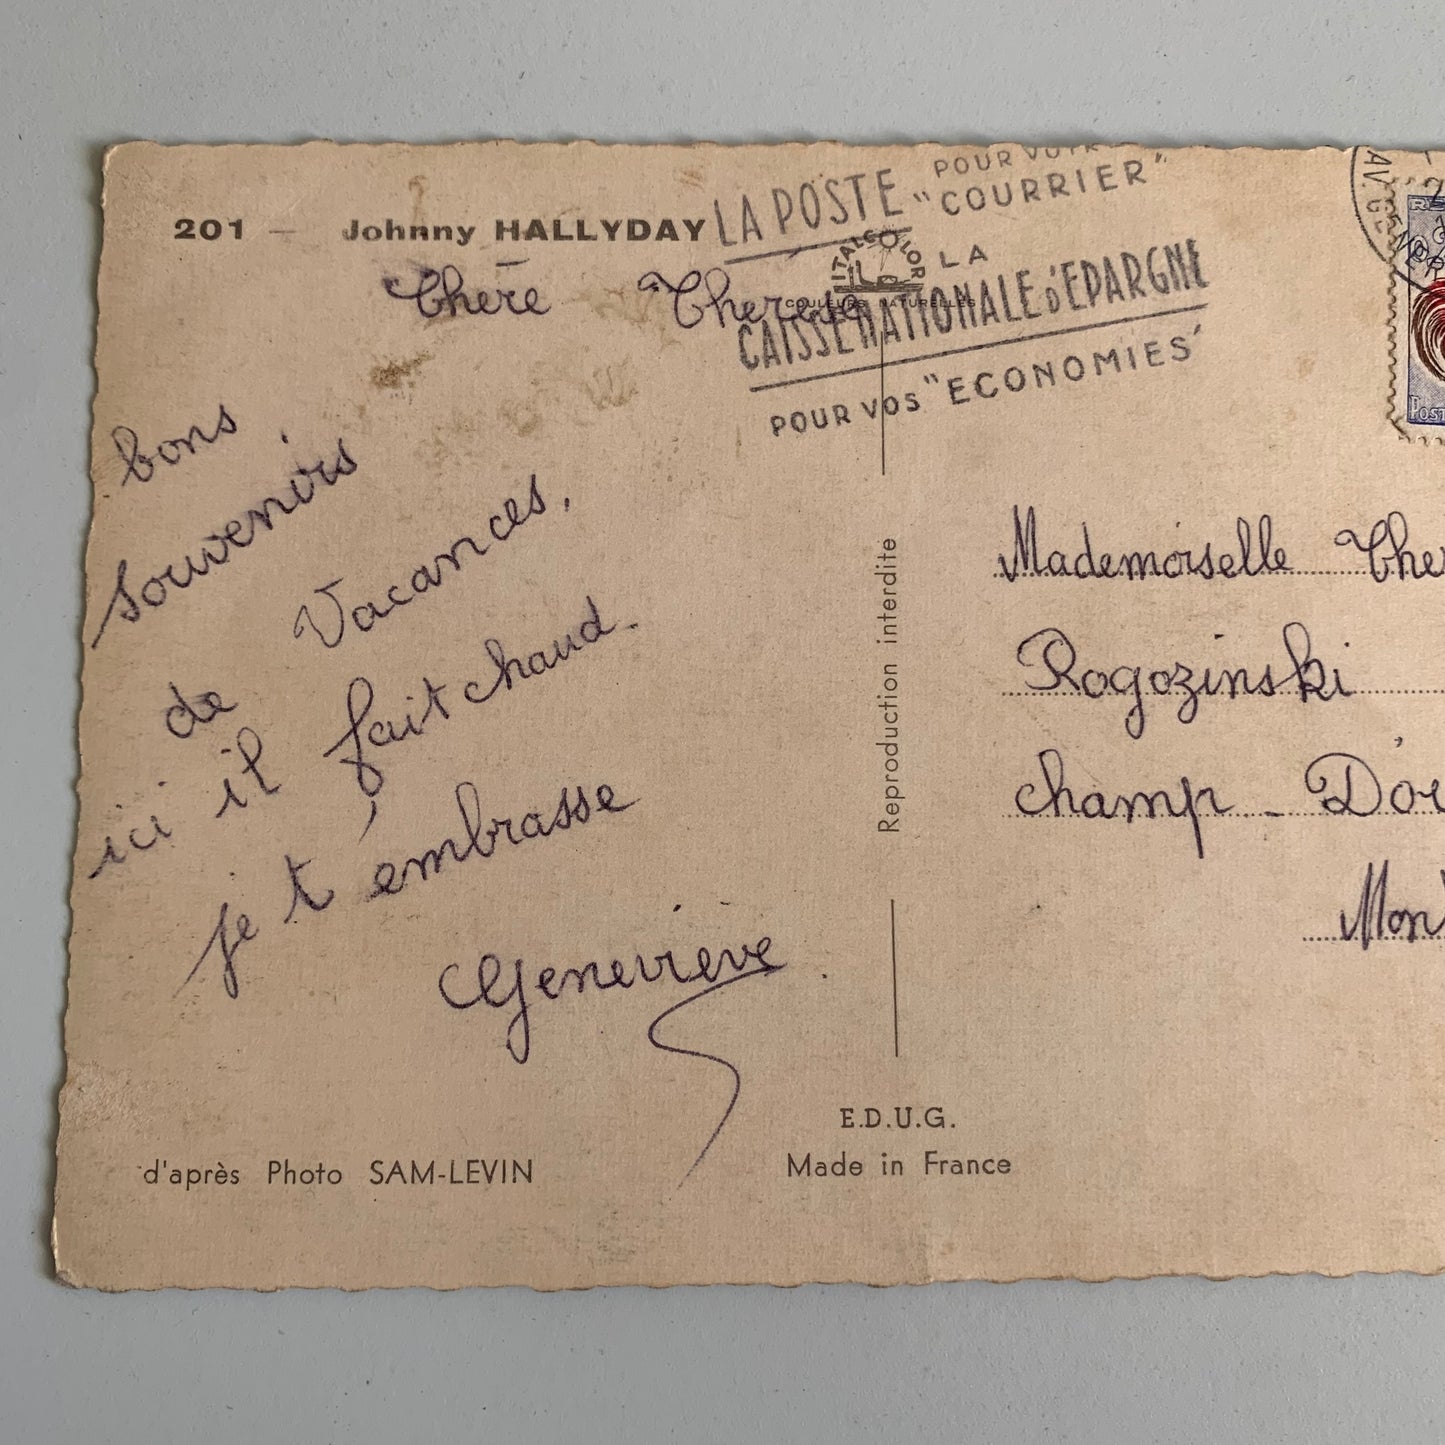 201 — Johnny HALLYDAY
LA POSTE
POUR VOTRE
"COURRIER"
LA
CAISSE NATIONALE D'EPARGNE
POUR VOS "ECONOMIES"
ITALCOLOR
COULEURS NATURELLES
Chère Therese
bons
souvenirs
de Vacances,
ici il fait chaud.
je t'embrasse
Geneviève.
d'après Photo SAM-LEVIN
Reproduction interdite
E.D.U.G.
Made in France
Mademoiselle The
Rogozinski
champ - D'or
Mon
POST